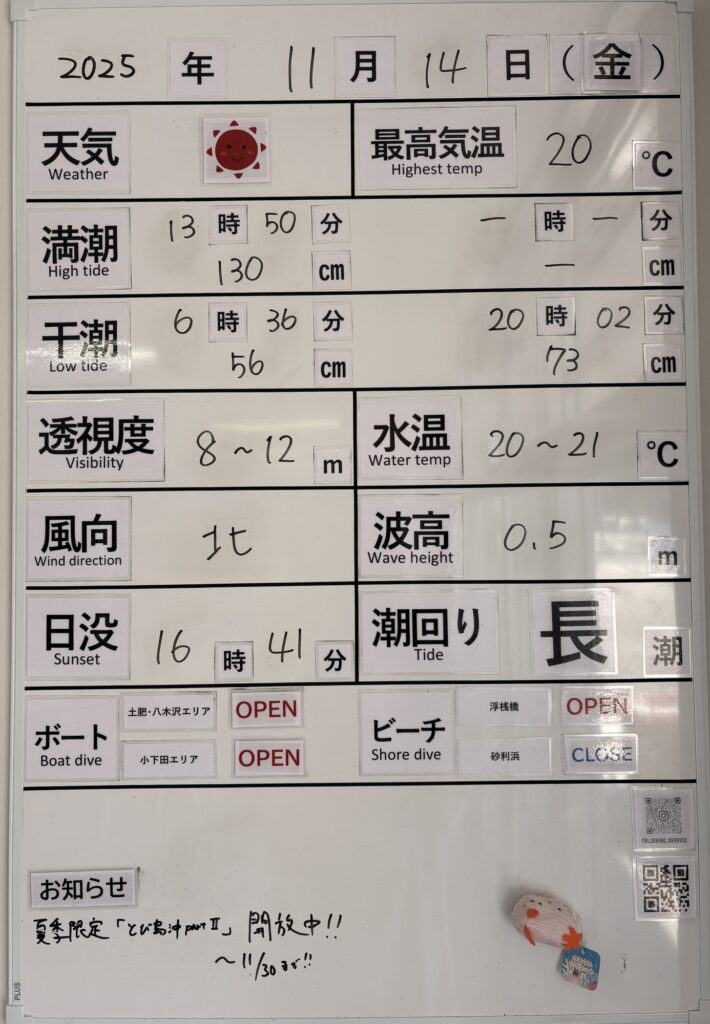 2025 年 11 月 14 日 (金)
天気 Weather
最高気温 Highest temp 20 ℃
満潮 High tide
13 時 50 分 ー 時 ー 分
130 cm ー cm
干潮 Low tide
6 時 36 分 20 時 02 分
56 cm 73 cm
透視度 Visibility 8～12 m
水温 Water temp 20～21 ℃
風向 Wind direction 北
波高 Wave height 0.5 m
日没 Sunset 16 時 41 分
潮回り Tide 長 潮
ボート Boat dive
土肥・八木沢エリア OPEN
小下田エリア OPEN
ビーチ Shore dive
浮桟橋 OPEN
砂利浜 CLOSE
TOI_DIVING_SERVICE
お知らせ
夏季限定「とび島沖partⅡ」開放中!!
～11/30まで!!
PLUS